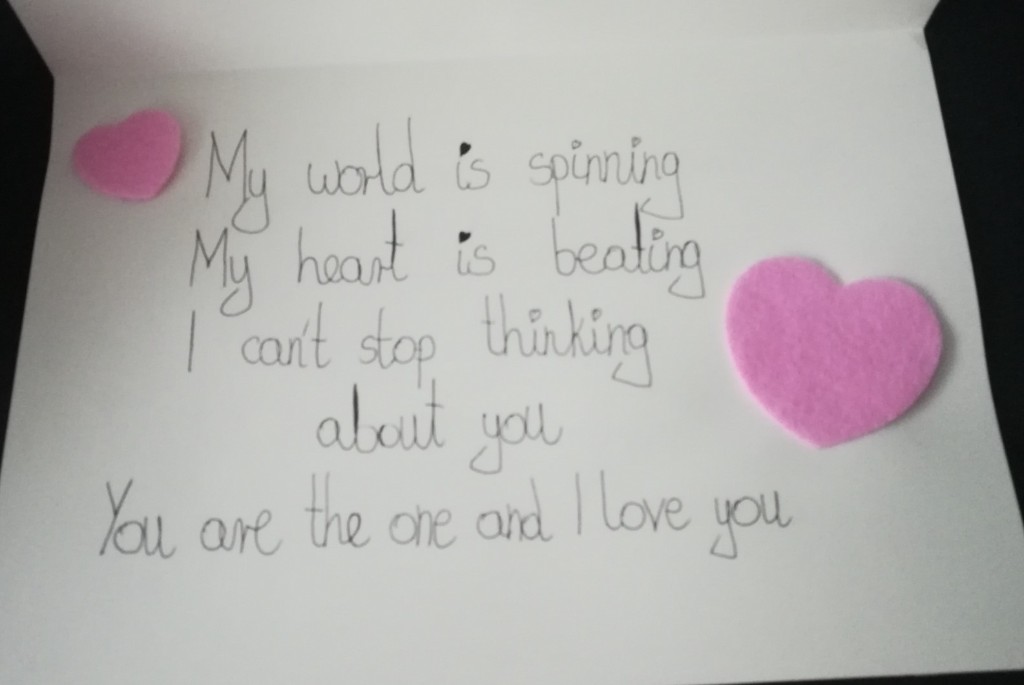 My world is spinning
My heart is beating
I can't stop thinking
about you
You are the one and I love you